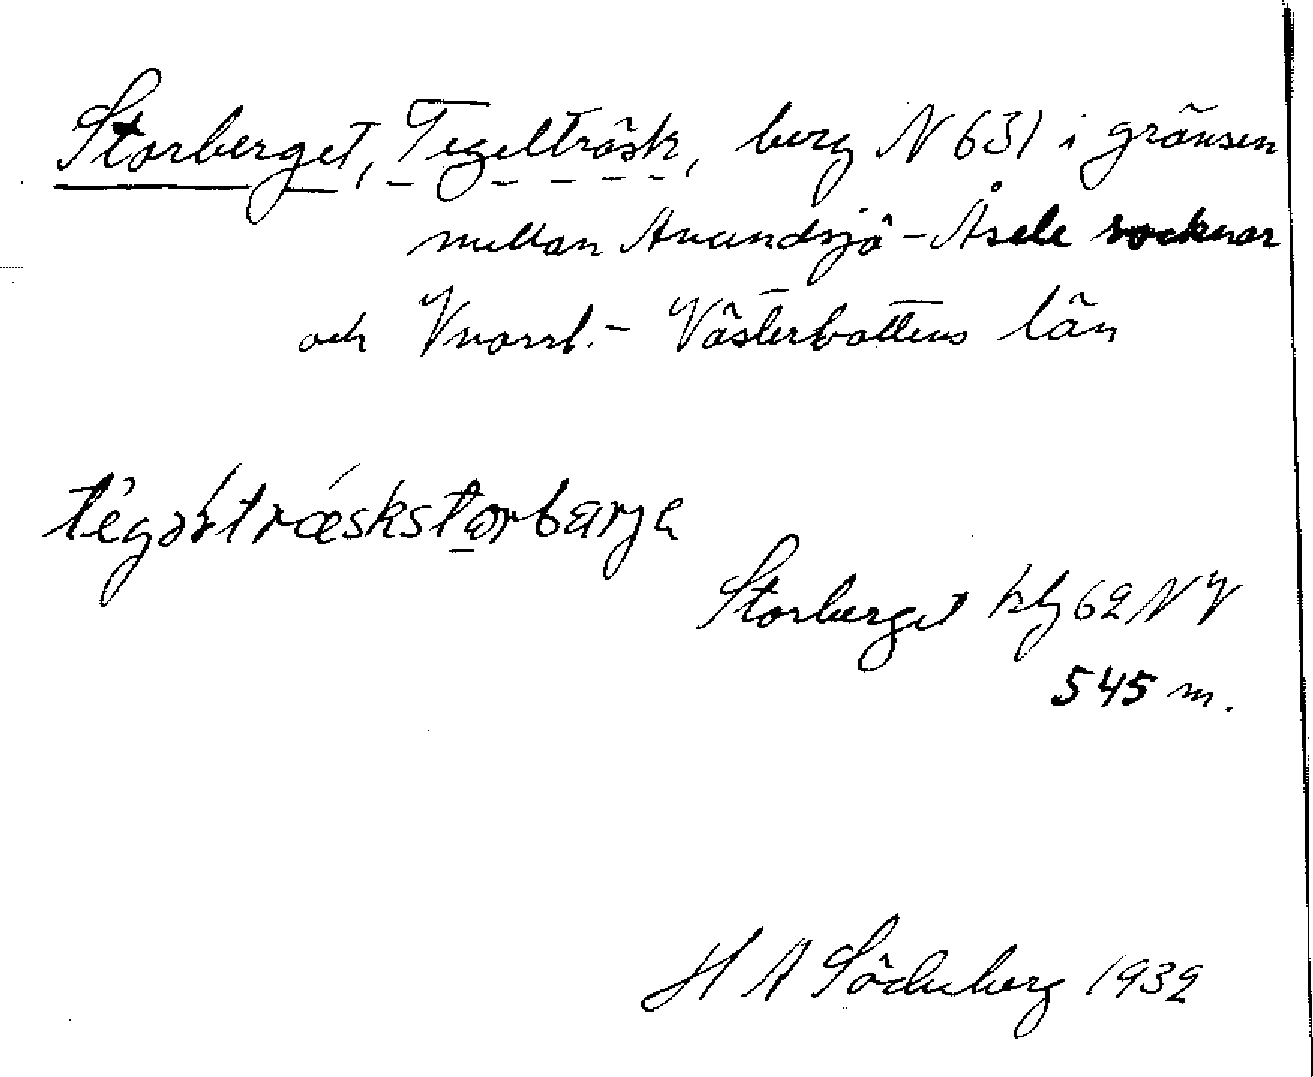 Storberget, Tegelträsk, berg N 631 i gränsen
mellan Anundsjö - Åsele socknar
och Vnorrl. - Västerbottens län
tégəltræskstorbarjə
Storberget hbj 62 NV
545 m.
H A Söderberg 1932